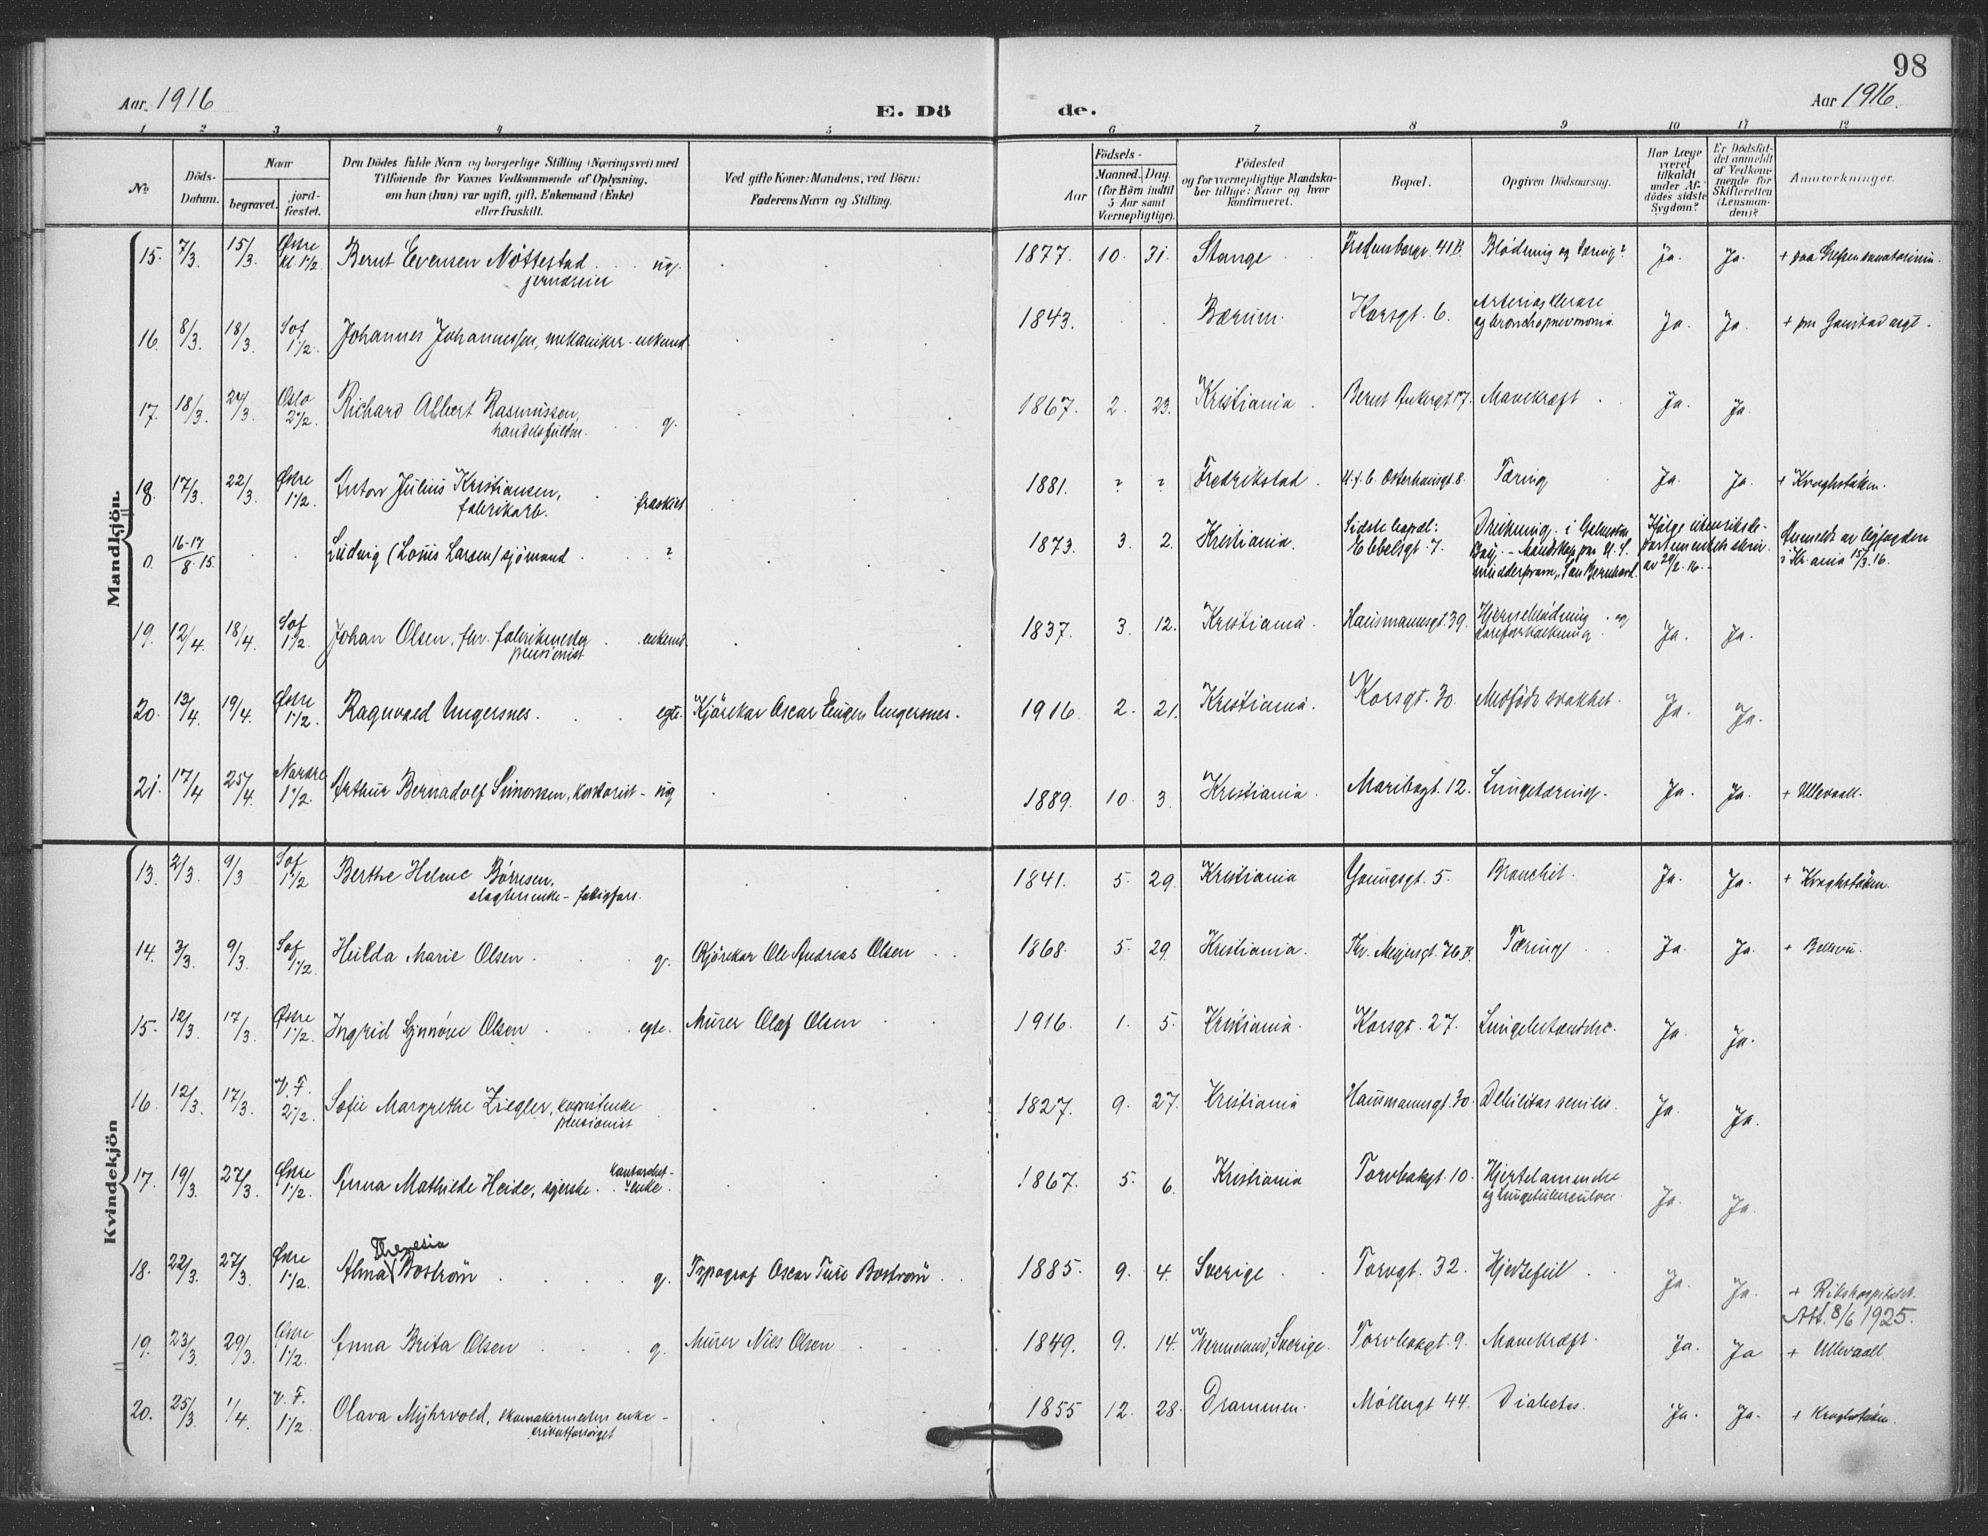 98
Aar 1916
E. Dö
de.
Aar 1916.
1 2 3 4 5 6 7 8 9 10 11 12
No
Döds-
Datum.
Naar
begravet.
jord-
fæstet.
Den Dödes fulde Navn og borgerlige Stilling (Næringsvei) med
Tilföiende for Voxnes Vedkommende af Oplysning,
om han (hun) var ugift, gift, Enkemand (Enke)
eller fraskilt.
Ved gifte Koner: Mandens, ved Börn:
Faderens Navn og Stilling.
Födsels-
Aar
Maaned. Dag.
(for Börn indtil
5 Aar samt
Værnepligtige).
Födested
og for værnepligtige Mandska-
ber tillige: Naar og hvor
konfirmeret.
Bopæl.
Opgiven Dödsaarsag.
Har Læge
været
tilkaldt
under Af-
dödes sidste
Sygdom?
Er Dödsfal-
det anmeldt
af Vedkom-
mende for
Skifteretten
(Lensman-
den)?
Anmerkninger.
Mandkjön.
15. 7/3. 15/3. Østre kl 1 1/2. Bernt Evensen Nøttestad ug. 1877. 10. 31. Stange Fredensborgv. 41B. Blödning og Tæring? Ja. Ja. + paa Grefsen sanatorium.
jerndreier
16. 8/3. 18/3. Sof 1 1/2. Johannes Johannessen, mekaniker - enkemd. 1843. Bærum. Korsgt. 6. Arteriosklerose Ja. Ja. + paa Gaustad asyl.
og bronchopneumonia
17. 18/3. 24/3. Oslo 2 1/2. Richard Albert Rasmussen, g. 1867. 2. 23. Kristiania. Bernt Ankersgt 17. Mavekræft Ja. Ja.
handelsfuldm.
18. 17/3. 22/3. Østre 1 1/2. Anton Julius Kristiansen, fraskilt 1881. ? ? Fredrikstad. U. f. b. Osterhausgt. 8. Tæring Ja. Ja. + Kroghstötten.
fabrikarb.
0. 16-17/8 15. Ludvig (Louis Larsen) sjömand ? 1873. 3. 2. Kristiania. Sidste bopæl: Ebbelsgt. 7. Drukning i Galveston Bay.
Ifølge utenriksde-
partementets skriv.
av 29/2. 16.
Anmeldt av byfogden
i Kr.ania 15/3. 16.
19. 12/4. 18/4. Sof 1 1/2. Johan Olsen, fhv. fabrikmester enkemd. 1837. 3. 12. Kristiania. Hausmannsgt. 39. Hjerneblödning og Ja. Ja.
pensionist
aareforkalkning
20. 13/4. 19/4. Østre 1 1/2. Ragnvald Ungersnes. egte. Kjörekar Oscar Eugen Ungersnes. 1916. 2. 21. Kristiania. Korsgt. 30. Medfödt svakhet. Ja. Ja.
21. 17/4 25/4. Nordre 1 1/2. Arthur Bernadolf Simonsen, kontorist - ug 1889. 10. 3. Kristiania. Maribogt. 12. Lungetæring. Ja. Ja. + Ullevaall.
Kvindekjön
13. 2/3. 9/3 Sof 1 1/2 Berthe Helene Børresen, 1841. 5. 29. Kristiania Youngsgt. 5. Bronchit. Ja. Ja. + Kroghstötten.
slagterenke - fattigfors.
14. 3/3. 9/3. Sof 1 1/2. Hulda Marie Olsen g. Kjörekar Ole Andreas Olsen 1868. 5. 29. Kristiania. Thv. Meyersgt. 76B. Tæring Ja. Ja. + Bellevue.
15. 12/3. 17/3. Østre 1 1/2. Ingrid Synnöve Olsen egte. Murer Olaf Olsen 1916. 1. 5. Kristiania. Korsgt. 27. Lungebetændelse. Ja. Ja.
16. 12/3. 17/3. V. F. 2 1/2. Sofie Margrethe Ziegler, kopistenke 1827. 9. 27. Kristiania Hausmannsgt. 30. Debilitas senilis. Ja. Ja.
pensionist
17. 19/3. 27/3. Østre 1 1/2. Anna Mathilde Heide, syerske kontorist- enke. 1867. 5. 6. Kristiania Torvbakgt. 10. Hjertelammelse Ja. Ja.
og lungetuberculose.
18. 22/3. 27/3. Østre 1 1/2. Alma Theresia Boström g. Typograf Oscar Ture Boström 1885. 9. 4. Sverige Torvgt. 32. Hjertefeil Ja. Ja. + Rikshospitalet.
Att. 8/6 1925.
19. 23/3. 29/3. Østre 1 1/2. Anna Brita Olsen g. Murer Nils Olsen 1849. 9. 14. Vermeland, Sverige. Torvbakgt. 9. Mavekræft. Ja. Ja + Ullevaall.
20. 25/3. 1/4. V. F. 1 1/2 Olava Myhrvold, skomakermesters enke - 1855 12. 28. Drammen. Møllergt 44. Diabetes. Ja. Ja. + Kroghstötten.
privatforsörget